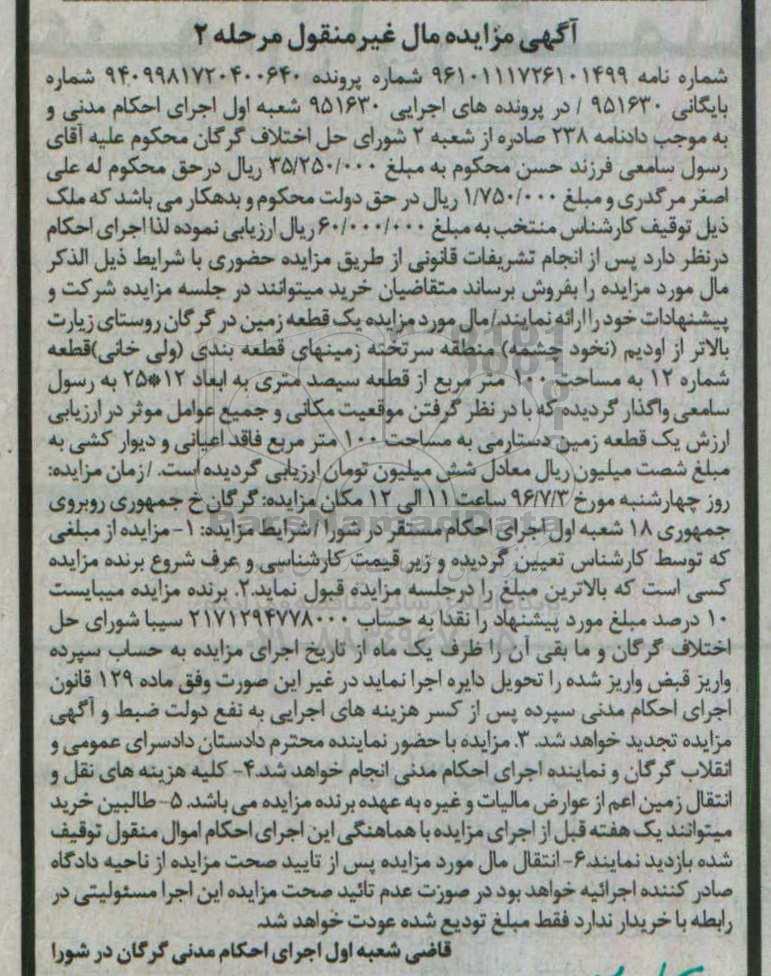 آگهی مزایده مال غیرمنقول مرحله ۲
شماره نامه ۹۶۱۰۱۱۱۷۲۶۱۰۱۴۹۹ شماره پرونده ۹۴۰۹۹۸۱۷۲۰۴۰۰۶۴۰ شماره
بایگانی ۹۵۱۶۳۰ / در پرونده های اجرایی ۹۵۱۶۳۰ شعبه اول اجرای احکام مدنی و
به موجب دادنامه ۲۳۸ صادره از شعبه ۲ شورای حل اختلاف گرگان محکوم علیه آقای
رسول سامعی فرزند حسن محکوم به مبلغ ۳۵/۲۵۰/۰۰۰ ریال درحق محکوم له علی
اصغر مرگدری و مبلغ ۱/۷۵۰/۰۰۰ ریال در حق دولت محکوم و بدهکار می باشد که ملک
ذیل توقیف کارشناس منتخب به مبلغ ۶۰/۰۰۰/۰۰۰ ریال ارزیابی نموده لذا اجرای احکام
درنظر دارد پس از انجام تشریفات قانونی از طریق مزایده حضوری با شرایط ذیل الذکر
مال مورد مزایده را بفروش برساند متقاضیان خرید میتوانند در جلسه مزایده شرکت و
پیشنهادات خود را ارائه نمایند./مال مورد مزایده یک قطعه زمین در گرگان روستای زیارت
بالاتر از اودیم (نخود چشمه) منطقه سرتخته زمینهای قطعه بندی (ولی خانی)قطعه
شماره ۱۲ به مساحت ۱۰۰ متر مربع از قطعه سیصد متری به ابعاد ۱۲*۲۵ به رسول
سامعی واگذار گردیده که با در نظر گرفتن موقعیت مکانی و جمیع عوامل موثر در ارزیابی
ارزش یک قطعه زمین دستارمی به مساحت ۱۰۰ متر مربع فاقد اعیانی و دیوار کشی به
مبلغ شصت میلیون ریال معادل شش میلیون تومان ارزیابی گردیده است. /زمان مزایده:
روز چهارشنبه مورخ ۹۶/۷/۳ ساعت ۱۱ الی ۱۲ مکان مزایده: گرگان خ جمهوری روبروی
جمهوری ۱۸ شعبه اول اجرای احکام مستقر در شورا /شرایط مزایده: ۱- مزایده از مبلغی
که توسط کارشناس تعیین گردیده و زیر قیمت کارشناسی و عرف شروع برنده مزایده
کسی است که بالاترین مبلغ را درجلسه مزایده قبول نماید.۲. برنده مزایده میبایست
۱۰ درصد مبلغ مورد پیشنهاد را نقدا به حساب ۲۱۷۱۲۹۴۷۷۸۰۰۰ سیبا شورای حل
اختلاف گرگان و ما بقی آن را ظرف یک ماه از تاریخ اجرای مزایده به حساب سپرده
واریز قبض واریز شده را تحویل دایره اجرا نماید در غیر این صورت وفق ماده ۱۲۹ قانون
اجرای احکام مدنی سپرده پس از کسر هزینه های اجرایی به نفع دولت ضبط و آگهی
مزایده تجدید خواهد شد. ۳. مزایده با حضور نماینده محترم دادستان دادسرای عمومی و
انقلاب گرگان و نماینده اجرای احکام مدنی انجام خواهد شد.۴- کلیه هزینه های نقل و
انتقال زمین اعم از عوارض مالیات و غیره به عهده برنده مزایده می باشد. ۵- طالبین خرید
میتوانند یک هفته قبل از اجرای مزایده با هماهنگی این اجرای احکام اموال منقول توقیف
شده بازدید نمایند.۶- انتقال مال مورد مزایده پس از تایید صحت مزایده از ناحیه دادگاه
صادر کننده اجرائیه خواهد بود در صورت عدم تائید صحت مزایده این اجرا مسئولیتی در
رابطه با خریدار ندارد فقط مبلغ تودیع شده عودت خواهد شد.
قاضی شعبه اول اجرای احکام مدنی گرگان در شورا
ParsNamadData